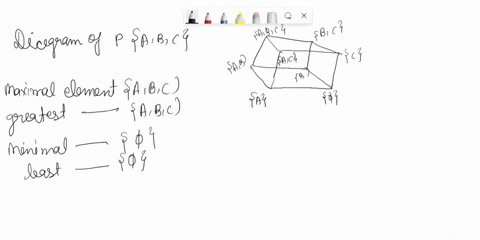 Dicegram of P {A,B,C}
maximal element {A,B,C)
greatest — {A,B,C)
minimal — {ϕ}
least — {ϕ}
{A,B,C}
{B,C}
{A,B}
{A,C}
{C}
{B}
{A}
{ϕ}